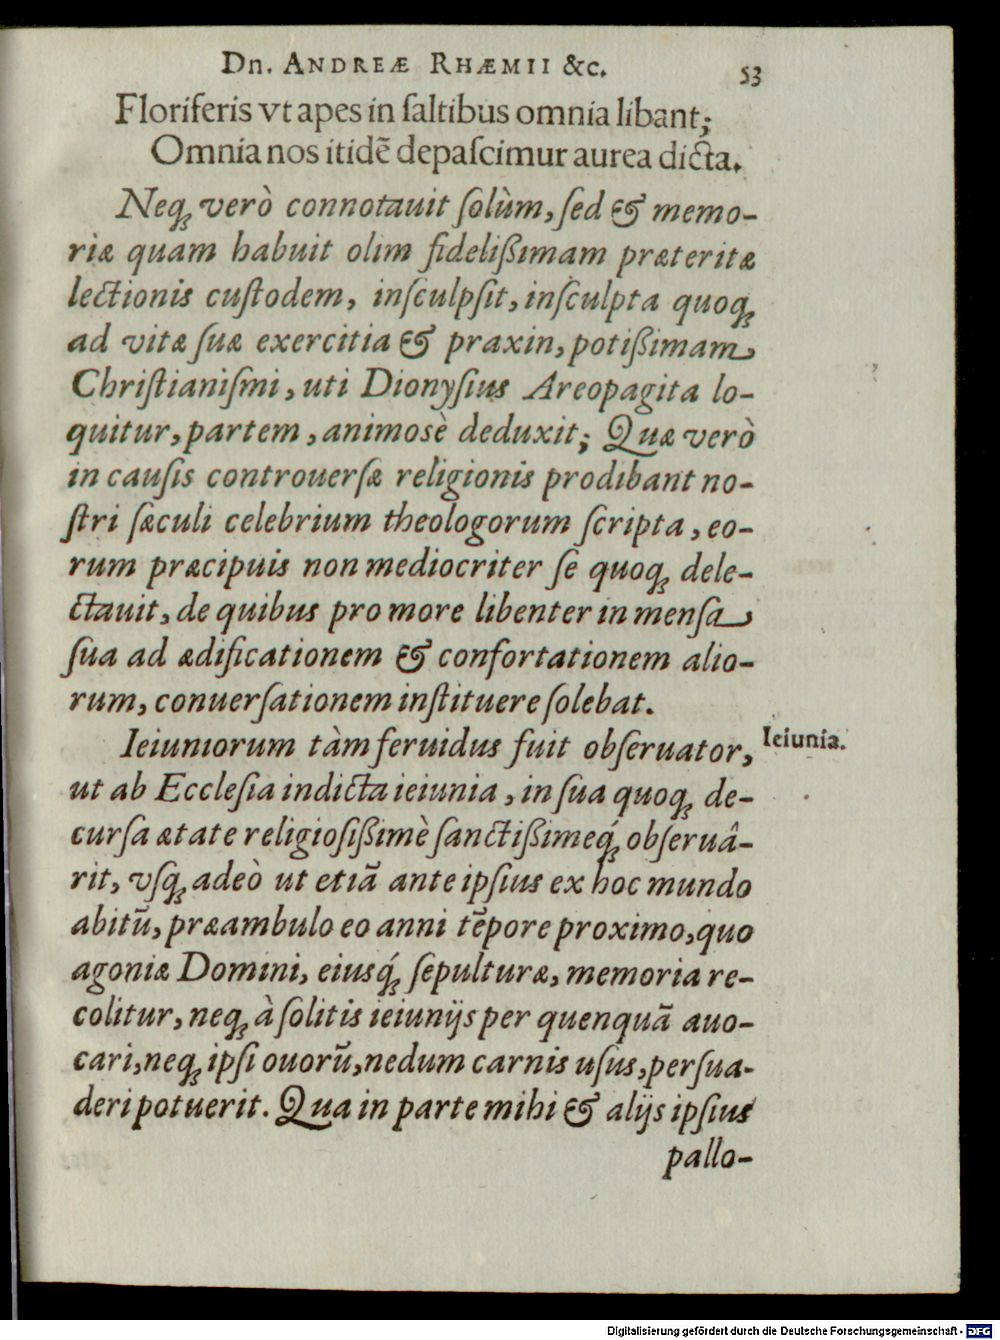 Dn. ANDREÆ RHÆMII &c. 53
Floriferis vt apes in ſaltibus omnia libant;
Omnia nos itidē depaſcimur aurea dicta.
Neq; verò connotauit ſolùm, ſed & memo-
riæ quam habuit olim fideliſsimam præteritæ
lectionis cuſtodem, inſculpſit, inſculpta quoq;
ad vitæ ſuæ exercitia & praxin, potiſsimam
Chriſtianiſmi, uti Dionyſius Areopagita lo-
quitur, partem, animosè deduxit; Quæ verò
in cauſis controuerſæ religionis prodibant no-
ſtri ſæculi celebrium theologorum ſcripta, eo-
rum præcipuis non mediocriter ſe quoq; dele-
ctauit, de quibus pro more libenter in menſa
ſua ad ædificationem & confortationem alio-
rum, conuerſationem inſtituere ſolebat.
Ieiuniorum tàm feruidus fuit obſeruator,
Ieiunia.
ut ab Eccleſia indicta ieiunia, in ſua quoq; de-
curſa ætate religioſiſsimè ſanctiſsimeq́; obſeruâ-
rit, vſq; adeò ut etiā ante ipſius ex hoc mundo
abitū, præambulo eo anni tēpore proximo, quo
agoniæ Domini, eiusq́; ſepulturæ, memoria re-
colitur, neq; à ſolitis ieiunijs per quenquā auo-
cari, neq; ipſi ouorū, nedum carnis uſus, perſua-
deri potuerit. Qua in parte mihi & alijs ipſius
pallo-
Digitalisierung gefördert durch die Deutsche Forschungsgemeinschaft - DFG